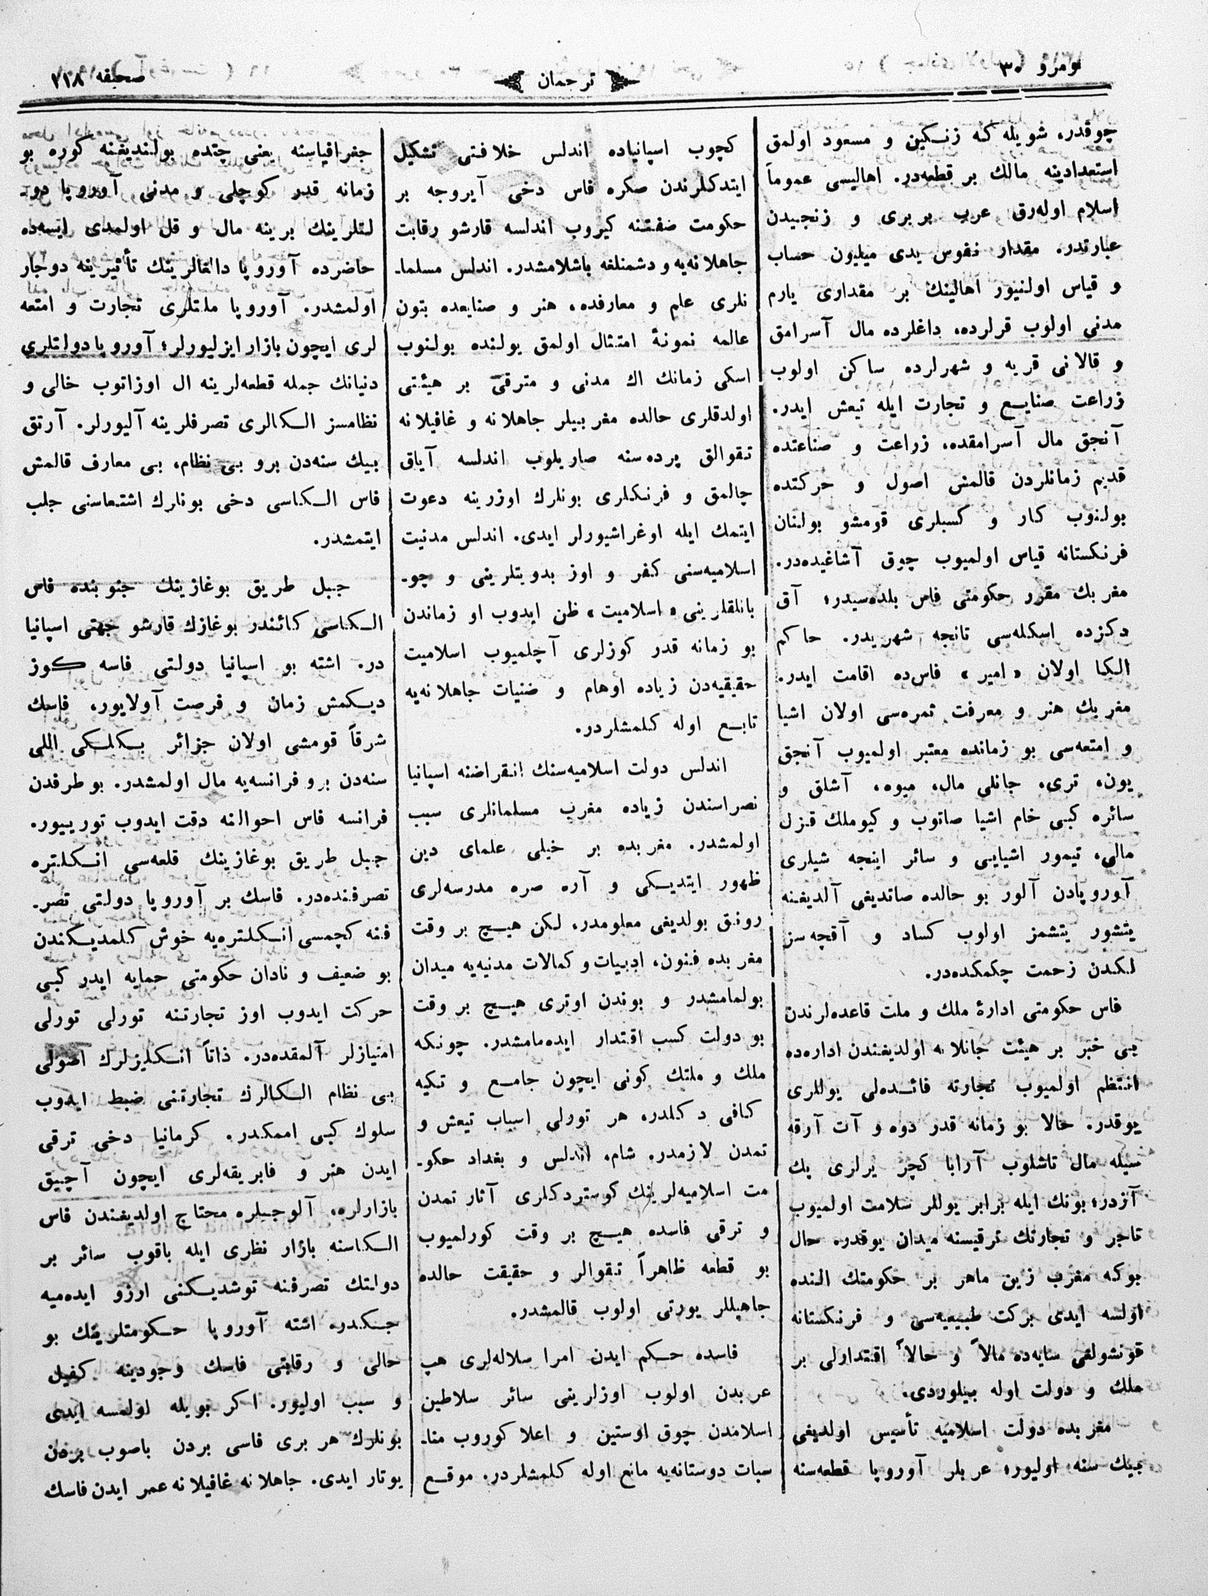 نومرو ۳۰
ترجمان
صحیفه ۱۱۸
چوقدر، شویله که زنکین و مسعود اولمق
استعدادینه مالك بر قطعه‌در. اهالیسی عموماً
اسلام اوله‌رق عرب بربری و زنجیدن
عبارتدر. مقدار نفوس یدی میلیون حساب
و قیاس اولنیور اهالینك بر مقداری یارم
مدنی اولوب قرلرده، داغلرده مال آسرامق
و قالانی قریه و شهرلرده ساکن اولوب
زراعت صنایع و تجارت ایله تیعش ایدر.
آنجق مال آسرامقده، زراعت و صناعتده
قدیم زمانلردن قالمش اصول و حرکتده
بولنوب کار و کسبلری قومشو بولنان
فرنکستانه قیاس اولمیوب چوق آشاغیده‌در.
مغربك مقرر حکومتی فاس بلده‌سیدر؛ آق
دکزده اسکله‌سی تانجه شهریدر. حاکم
الکا اولان «امیر» فاس‌ده اقامت ایدر.
مغربك هنر و معرفت ثمره‌سی اولان اشیا
و امتعه‌سی بو زمانده معتبر اولمیوب آنجق
یون، تری، جانلی مال، میوه، آشلق و
سائره کبی خام اشیا صاتوب و کیوملك قزل
مالی، تیمور اشیایی و سائر اینجه شیلری
آوروپادن آلور بو حالده صاتدیغی آلدیغنه
یتشور یتشمز اولوب کساد و آقچه‌سز
لکدن زحمت چکمکده‌در.
فاس حکومتی ادارهٔ ملك و ملت قاعده‌لرندن
بی خبر بر هیئت جاهلانه اولدیغندن اداره‌ده
انتظم اولمیوب تجارته فائده‌لی یوللری
یوقدر. حالا بو زمانه قدر دوه و آت آرقه
سیله مال تاشلوب آرابا کچر یرلری پك
آزدر؛ بونك ایله برابر یوللر سلامت اولمیوب
تاجر و تجارتك ترقیسنه میدان یوقدر. حال
بوکه مغرب زمین ماهر بر حکومتك النده
اولسه ایدی برکت طبیعیه‌سی و فرنکستانه
قونشولغی سایه‌ده مالاً و حالاً اقتدارلی بر
ملك و دولت اوله بیلوردی.
مغربده دولت اسلامیه تأسیس اولدیغی
بیك سنه اولیور؛ عربلر آوروپا قطعه‌سنه
کچوب اسپانیاده اندلس خلافتی تشکیل
ایتدکلرندن صکره فاس دخی آیروجه بر
حکومت صفتنه کیروب اندلسه قارشو رقابت
جاهلانه‌یه و دشمنلغه باشلامشدر. اندلس مسلما-
نلری علم و معارفده، هنر و صنایعده بتون
عالمه نمونهٔ امتثال اولمق یولنده بولنوب
اسکی زمانك اك مدنی و مترقی بر هیئتی
اولدقلری حالده مغربیلر جاهلانه و غافلانه
تقوالق پرده‌سنه صاریلوب اندلسه آیاق
چالمق و فرنکلری بونلرك اوزرینه دعوت
ایتمك ایله اوغراشیورلر ایدی. اندلس مدنیت
اسلامیه‌سنی کفر و اوز بدویتلرینی و چو-
بانلقلرینی «اسلامیت» ظن ایدوب او زماندن
بو زمانه قدر کوزلری آچلمیوب اسلامیت
حقیقیه‌دن زیاده اوهام و ضنیات جاهلانه‌یه
تابع اوله کلمشلردر.
اندلس دولت اسلامیه‌سنك انقراضنه اسپانیا
نصراسندن زیاده مغرب مسلمانلری سبب
اولمشدر. مغربده بر خیلی علمای دین
ظهور ایتدیکی و آره صره مدرسه‌لری
رونق بولدیغی معلومدر، لکن هیچ بر وقت
مغربده فنون، ادبیات و کمالات مدنیه‌یه میدان
بولمامشدر و بوندن اوتری هیچ بر وقت
بو دولت کسب اقتدار ایده‌مامشدر. چونکه
ملك و ملتك کونی ایچون جامع و تکیه
کافی دکلدر، هر تورلی اسباب تیعش و
تمدن لازمدر. شام، اندلس و بغداد حکو-
مت اسلامیه‌لرینك کوستردکلری آثار تمدن
و ترقی فاسده هیچ بر وقت کورلمیوب
بو قطعه ظاهراً تقوالر و حقیقت حالده
جاهیللر یورتی اولوب قالمشدر.
فاسده حکم ایدن امرا سلاله‌لری هپ
عربدن اولوب اوزلرینی سائر سلاطین
اسلامدن چوق اوستین و اعلا کوروب منا-
سبات دوستانه‌یه مانع اوله کلمشلردر. موقع
جغرافیاسنه یعنی چتده بولندیغنه کوره بو
زمانه قدر کوچلی و مدنی آوروپا دو-
لتلرینك برینه مال و قل اولمدی ایسه‌ده
حاضرده آوروپا دالقالرینك تأثیرینه دوچار
اولمشدر. آوروپا ملتلری تجارت و امتعه
لری ایچون بازار ایزلیورلر؛ آوروپا دولتلری
دنیانك جمله قطعه‌لرینه ال اوزاتوب خالی و
نظامسز الکالری تصرفلرینه آلیورلر. آرتق
بیك سنه‌دن برو بی نظام، بی معارف قالمش
فاس الکاسی دخی بونلرك اشتهاسنی جلب
ایتمشدر.
جبل طریق بوغازینك جنوبنده فاس
الکاسی کائندر بوغازك قارشو جهتی اسپانیا
در. اشته بو اسپانیا دولتی فاسه کوز
دیکمش زمان و فرصت آولایور، فاسك
شرقاً قومشی اولان جزائر بکلکی اللی
سنه‌دن برو فرانسه‌یه مال اولمشدر. بو طرفدن
فرانسه فاس احوالنه دقت ایدوب تورییور.
جبل طریق بوغازینك قلعه‌سی انکلتره
تصرفنده‌در. فاسك بر آوروپا دولتی تصر-
فنه کچمسی انکلتره‌یه خوش کلمدیکندن
بو ضعیف و نادان حکومتی حمایه ایدر کبی
حرکت ایدوب اوز تجارتنه تورلی تورلی
امتیازلر آلمقده‌در. ذاتاً انکلیزلرك اصولی
بی نظام الکالرك تجارتنی ضبط ایدوب
سلوك کبی اممکدر. کرمانیا دخی ترقی
ایدن هنر و فابریقه‌لری ایچون آچیق
بازارلره، آلوجیلره محتاج اولدیغندن فاس
الکاسنه بازار نظری ایله باقوب سائر بر
دولتك تصرفنه توشدیکنی ارزو ایده‌میه
جکدر. اشته آوروپا حکومتلرینك بو
حالی و رقابتی فاسك وجودینه کفیل
و سبب اولیور. اکر بویله اولمسه ایدی
بونلرك هر بری فاسی بردن باصوب بردن
یوتار ایدی. جاهلانه غافیلانه عمر ایدن فاسك